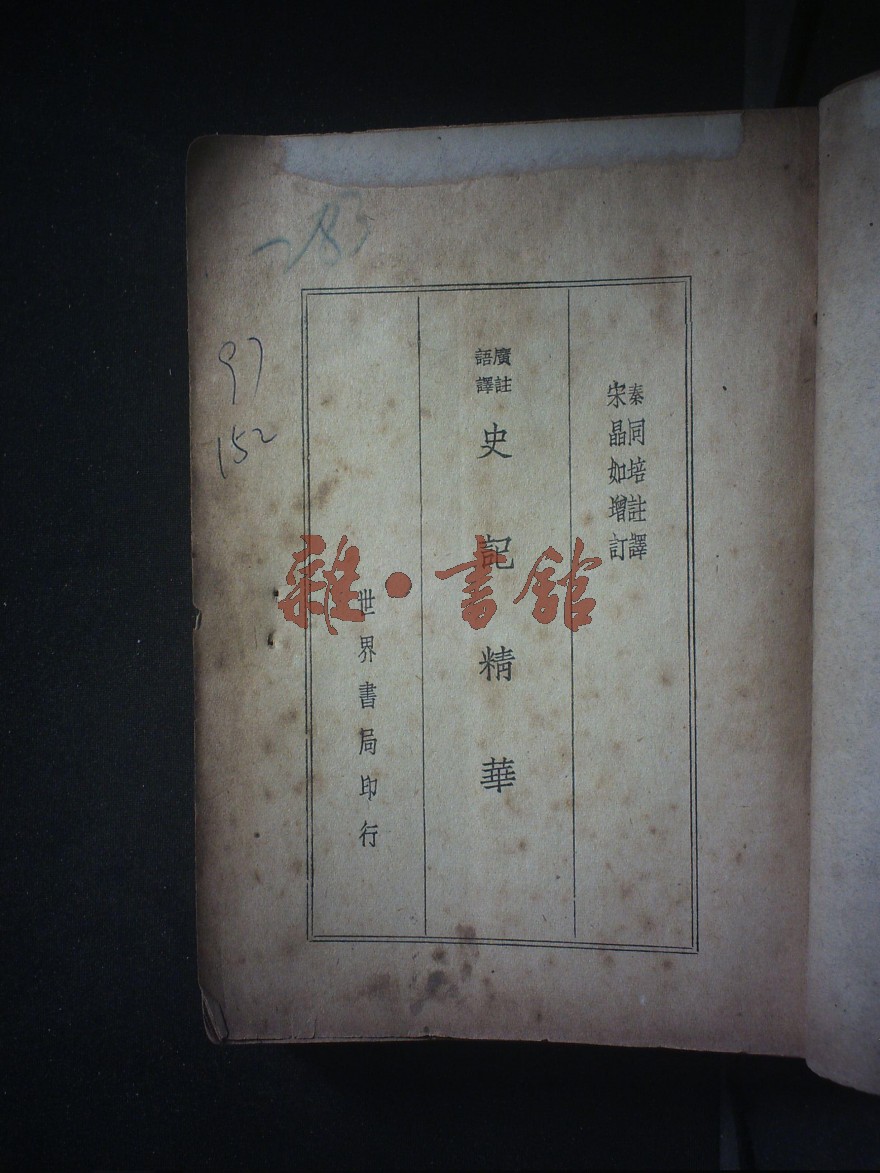 秦同培註譯
宋晶如增訂
廣註
語譯
史記精華
世界書局印行
雜·書館
97
152